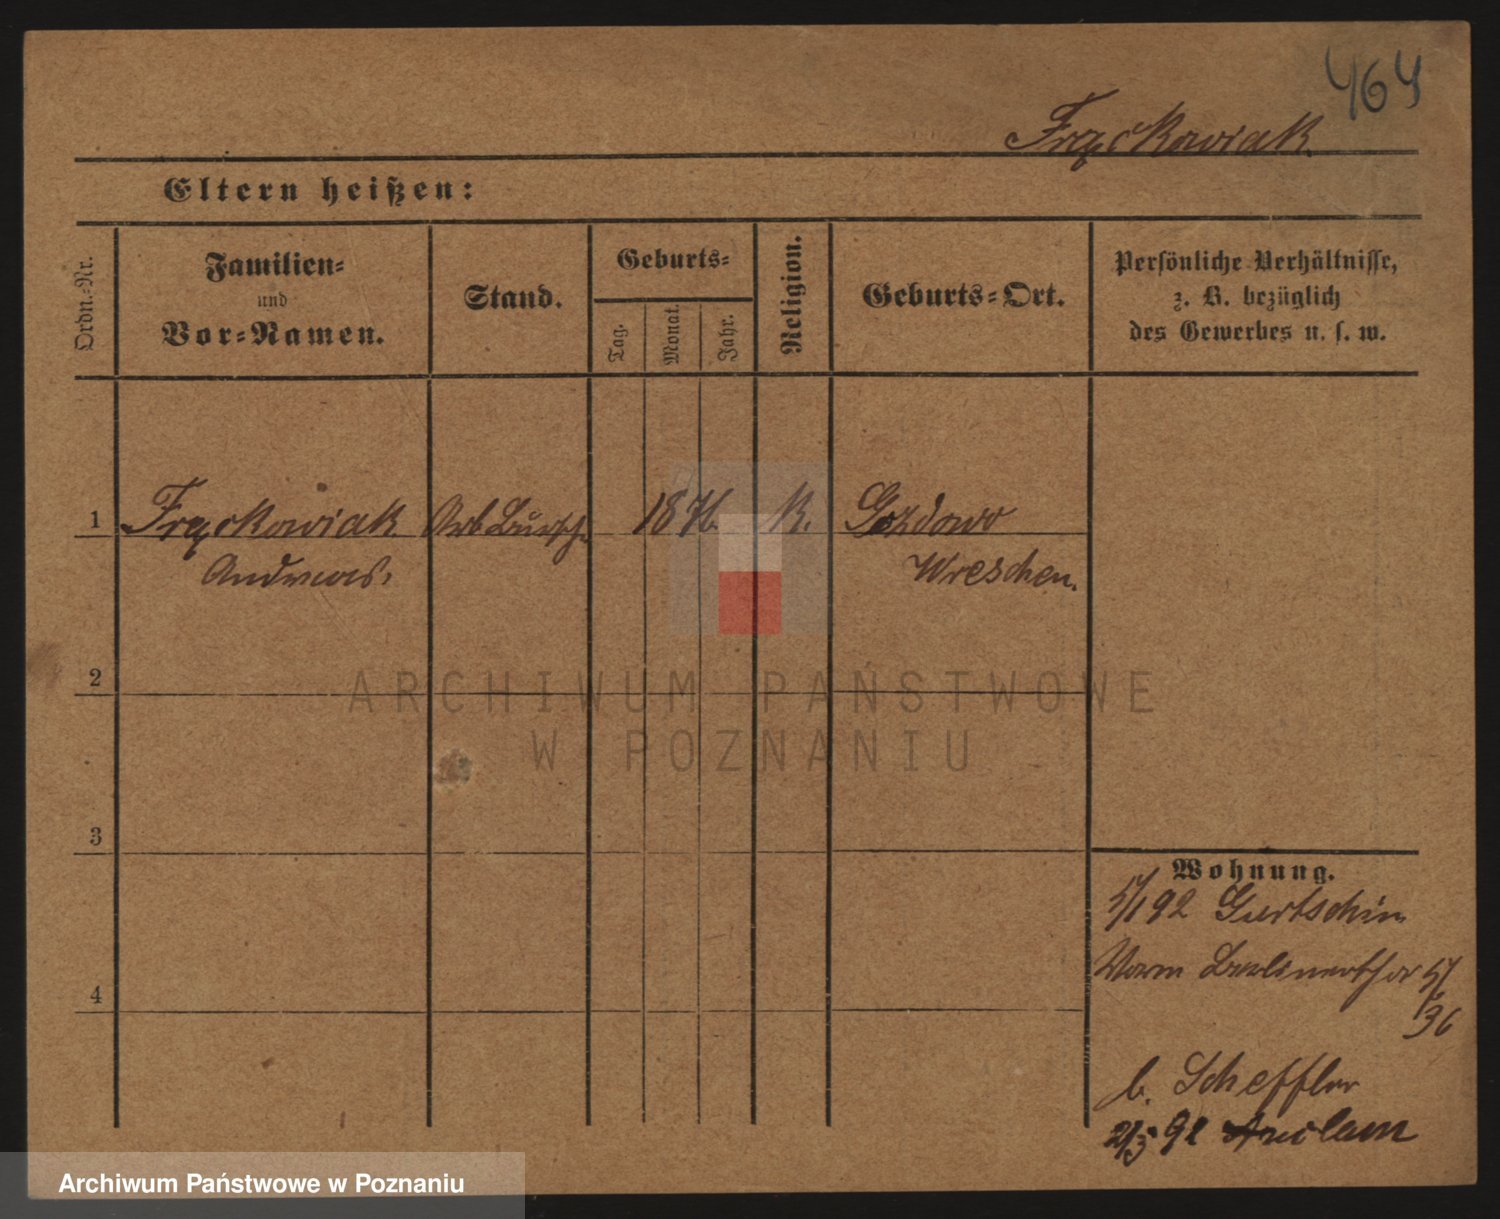 464
Frąckowiak
Eltern heißen:
Ordn.-Nr.
Familien-
und
Vor-Namen.
Stand.
Geburts-
Tag.
Monat.
Jahr.
Religion.
Geburts-Ort.
Persönliche Verhältnisse,
z. B. bezüglich
des Gewerbes u. s. w.
1 Frąckowiak Arb Bursch. 1876 K. Gozdowo
Andreas. Wreschen.
2
3
4
Wohnung.
5/1 92 Gurtschin
Vorm Berlinerthor 5/
36
b. Scheffler
2/5 92
ARCHIWUM PAŃSTWOWE
W POZNANIU
Archiwum Państwowe w Poznaniu